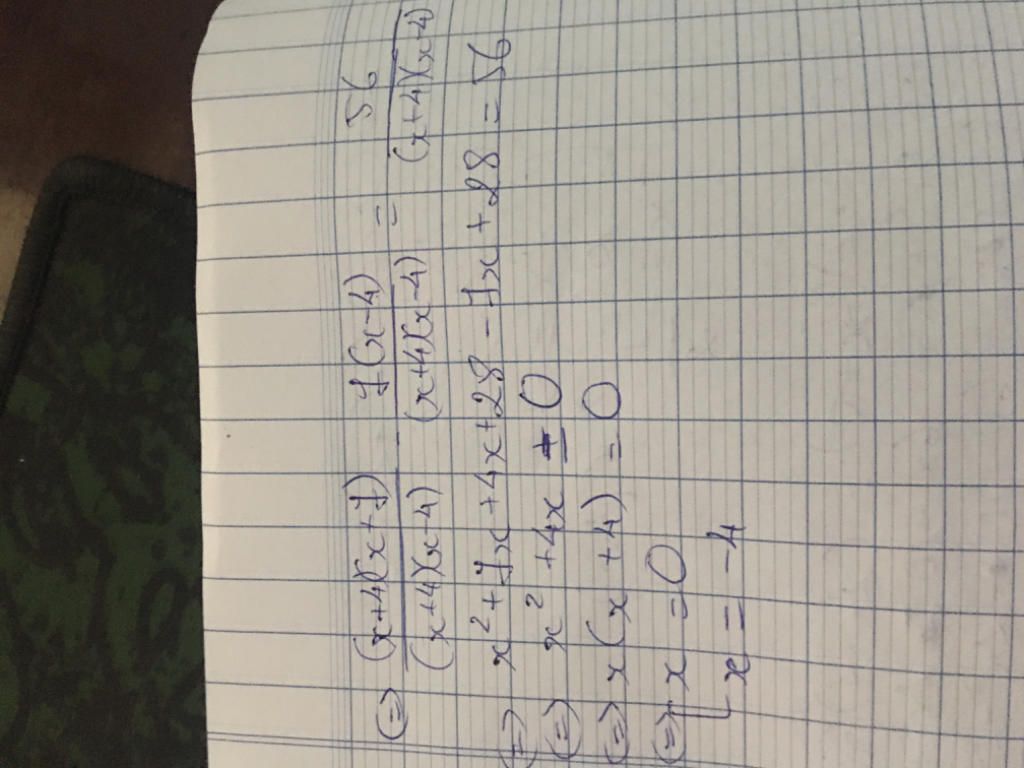 (=) (x+4)(x+7)/(x+4)(x-4) - 7(x-4)/(x+4)(x-4) = 56/(x+4)(x-4)
(=) x² + 7x + 4x + 28 - 7x + 28 = 56
(=) x² + 4x = 0
(=) x(x + 4) = 0
(=) [x = 0
x = -4